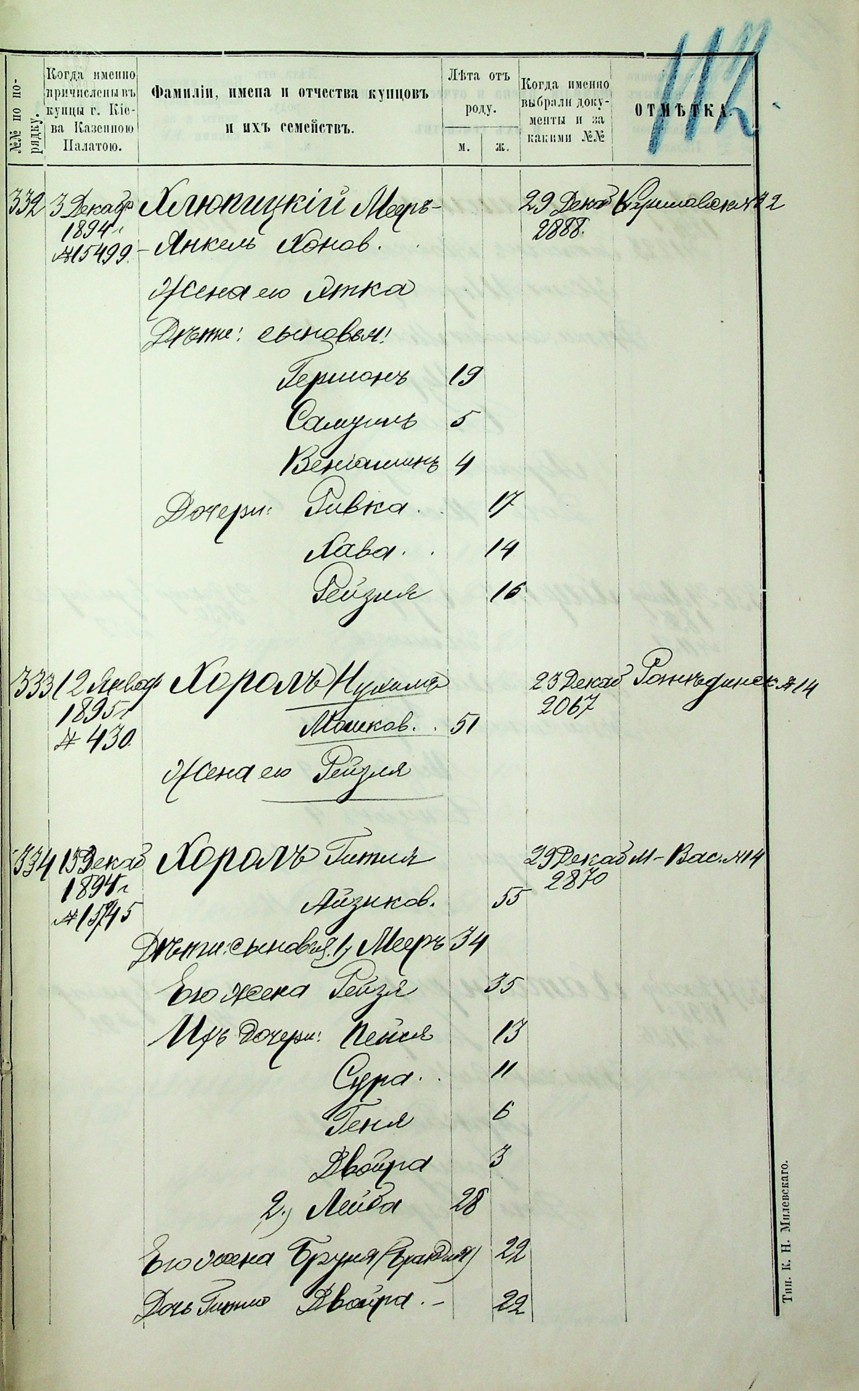 112.
№№ по порядку.
Когда именно причислены въ купцы г. Кіева Казенною Палатою.
Фамиліи, имена и отчества купцовъ и ихъ семействъ.
Лѣта отъ роду.
м.
ж.
Когда именно выбрали документы и за какими №№
ОТМѢТКА.
332 3 Декабр Хлюпицкій Мееръ- 29 Декаб
1894 г. 2888.
№15499 - Янкель Хонов.
Жена его Ятка
Дѣти: сыновья:
Германъ 19
Самуилъ 5
Веніаминъ 4
Дочери: Ривка 17
Хава 14
Рейзля 16
333 12 Январ Хороль Нухимъ 23 Декаб №14
1895 г. 2067
№ 430 Мошков. 51
Жена его Рейзля
334 13 Декаб Хороль Гитля 29 Декаб М-Вас. №14
1894 г. 2870
№15745 Айзиков. 55
Дѣти: сыновья: 1, Мееръ 34
Его жена Рейзя 35
Ихъ дочери: Пейся 13
Сура 11
Геня 6
Двойра 3
2.) Лейба 28
Его жена Бруня (Брандля) 22
Дочь Гитли Двойра. 22
Тип. К. Н. Милевскаго.